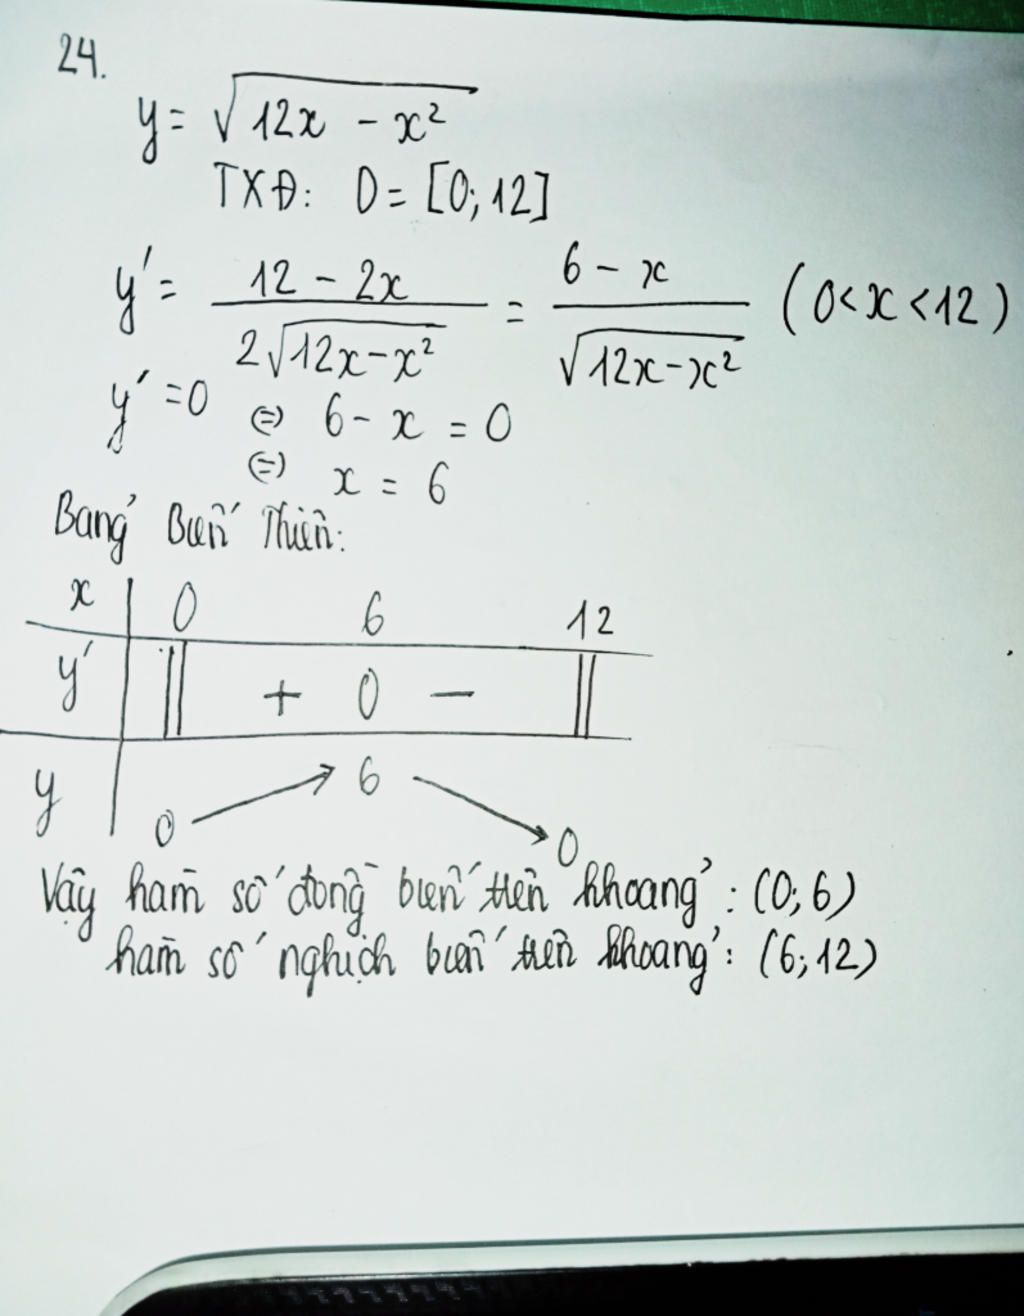 24.
y = √(12x - x²)
TXĐ: D = [0; 12]
y' = (12 - 2x) / (2√(12x - x²)) = (6 - x) / √(12x - x²) (0 < x < 12)
y' = 0 (=) 6 - x = 0
(=) x = 6
Bảng Biến Thiên:
x | 0 6 12
y' | || + 0 - ||
y | 0 ↗ 6 ↘ 0
Vậy hàm số đồng biến trên khoảng: (0; 6)
hàm số nghịch biến trên khoảng: (6; 12)